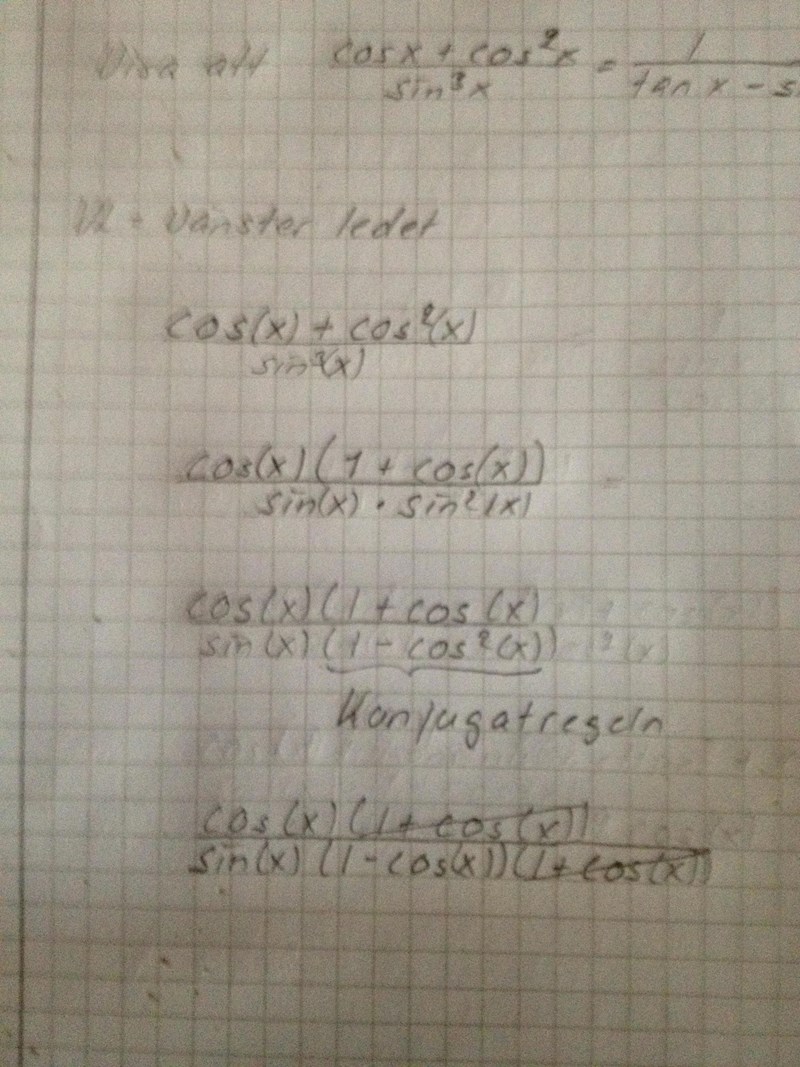 Visa att cosx + cos²x / sin³x = 1 / tan x - si
VL = Vänster ledet
cos(x) + cos²(x)
sin³(x)
cos(x) (1 + cos(x))
sin(x) · sin²(x)
cos(x) (1 + cos(x)
sin(x) (1 - cos²(x))
Konjugatregeln
cos(x) (1 + cos(x))
sin(x) (1 - cos(x)) (1 + cos(x))